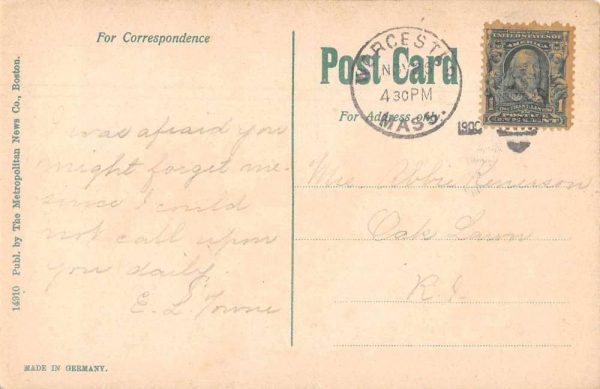 For Correspondence
Post Card
For Address only.
WORCESTER
NOV
4 30 PM
MASS.
190
UNITED STATES OF
AMERICA
1 1
POSTAGE
ONE CENT
I was afraid you
might forget me
since I could
not call upon
you daily.
E. L. Towne
Miss Abbi Remerson
Oak Lawn
R.I.
14910 Publ. by The Metropolitan News Co., Boston.
MADE IN GERMANY.